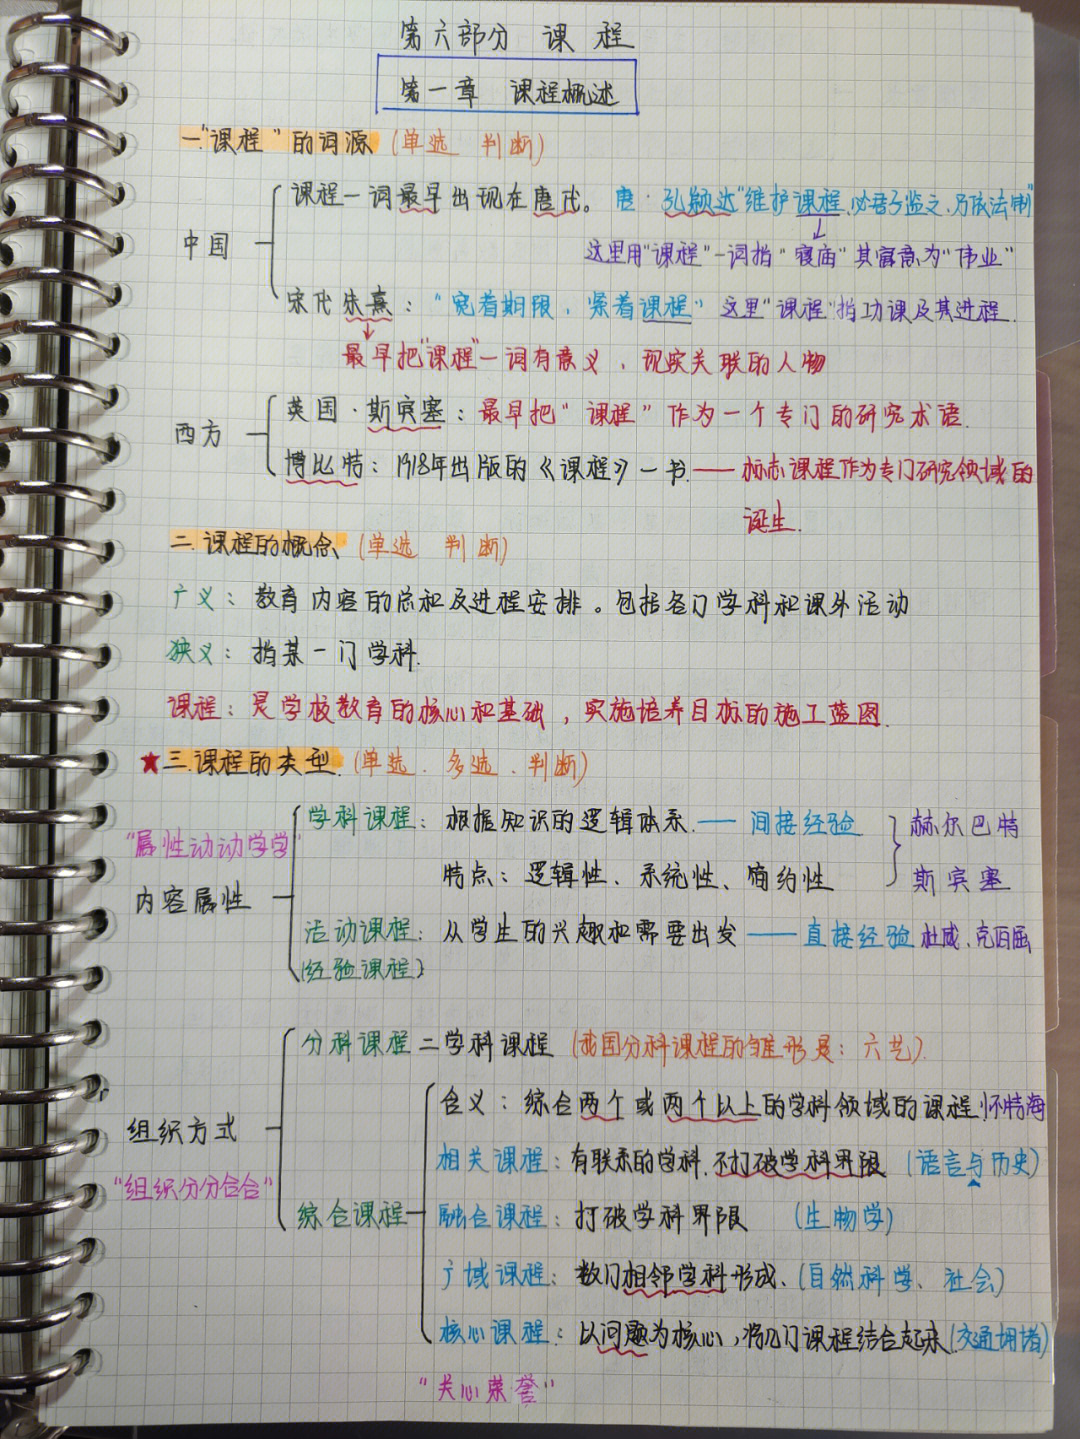 第六部分 课程
第一章 课程概述
一"课程"的词源 (单选 判断)
课程一词最早出现在唐代。 唐·孔颖达"维护课程,必君子监之,乃依法制"
中国
这里用"课程"一词指"寝庙"其寓意为"伟业"
宋代朱熹："宽着期限，紧着课程" 这里"课程"指功课及其进程.
最早把"课程"一词有意义，现实关联的人物
英国·斯宾塞：最早把"课程"作为一个专门的研究术语.
西方
博比特：1918年出版的《课程》一书——标志课程作为专门研究领域的
诞生.
二.课程的概念 (单选 判断)
广义：教育内容的总和及进程安排。包括各门学科和课外活动
狭义：指某一门学科.
课程：是学校教育的核心和基础，实施培养目标的施工蓝图.
★三.课程的类型.(单选.多选.判断)
学科课程：根据知识的逻辑体系.——间接经验 赫尔巴特
"属性动动学学"
特点：逻辑性、系统性、简约性 斯宾塞
内容属性
活动课程：从学生的兴趣和需要出发——直接经验 杜威、克伯屈
(经验课程)
分科课程=学科课程 (我国分科课程的雏形是：六艺).
含义：综合两个或两个以上的学科领域的课程.怀特海
组织方式
相关课程：有联系的学科.不打破学科界限 (语言与历史)
"组织分分合合"
综合课程 融合课程：打破学科界限 (生物学)
广域课程：数门相邻学科形成、(自然科学、社会)
核心课程：以问题为核心，将几门课程结合起来(交通拥堵)
"关心荣誉"